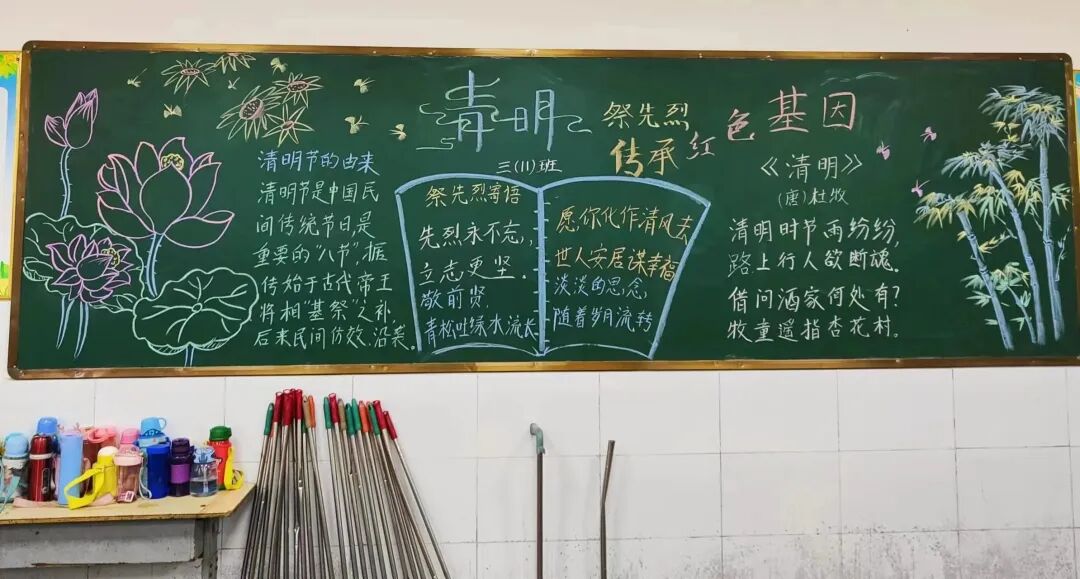 清明
祭先烈
传承红色基因
三(11)班
清明节的由来
清明节是中国民
间传统节日是
重要的"八节",据
传始于古代帝王
将相"墓祭"之礼,
后来民间仿效,沿袭。
祭先烈寄语
先烈永不忘,
立志更坚.
敬前贤,
青松吐绿水流长
愿你化作清风去
世人安居谋幸福
淡淡的思念,
随着岁月流转
《清明》
(唐)杜牧
清明时节雨纷纷,
路上行人欲断魂.
借问酒家何处有?
牧童遥指杏花村。